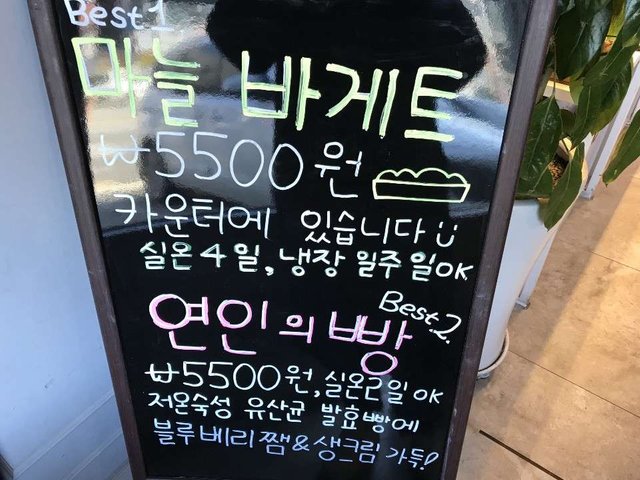 Best 1
마늘 바게트
₩5500원
카운터에 있습니다
실온4일, 냉장 일주일OK
Best.2.
연인의빵
₩5500원, 실온2일 OK
저온숙성 유산균 발효빵에
블루베리쨈&생크림 가득!